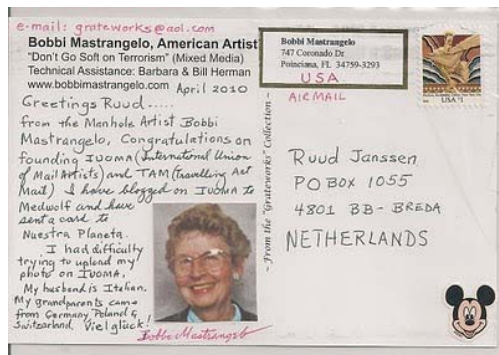 e-mail: grateworks@aol.com
Bobbi Mastrangelo, American Artist
"Don't Go Soft on Terrorism" (Mixed Media)
Technical Assistance: Barbara & Bill Herman
www.bobbimastrangelo.com April 2010
Greetings Ruud.....
from the Manhole Artist Bobbi
Mastrangelo, Congratulations on
founding IUOMA (International Union
of Mail Artists) and TAM (Travelling Art
Mail) I have blogged on IUOMA to
Medwolf and have
sent a card to
Nuestra Planeta.
I had difficulty
trying to upload my
photo on IUOMA.
My husband is Italian.
My grandparents came
from Germany Poland &
Switzerland Viel glück!
Bobbi Mastrangelo
- From the "Grateworks" Collection -
Bobbi Mastrangelo
747 Coronado Dr
Poinciana, FL 34759-3293
USA
AIRMAIL
USA $1
Ruud Janssen
PO BOX 1055
4801 BB - BREDA
NETHERLANDS